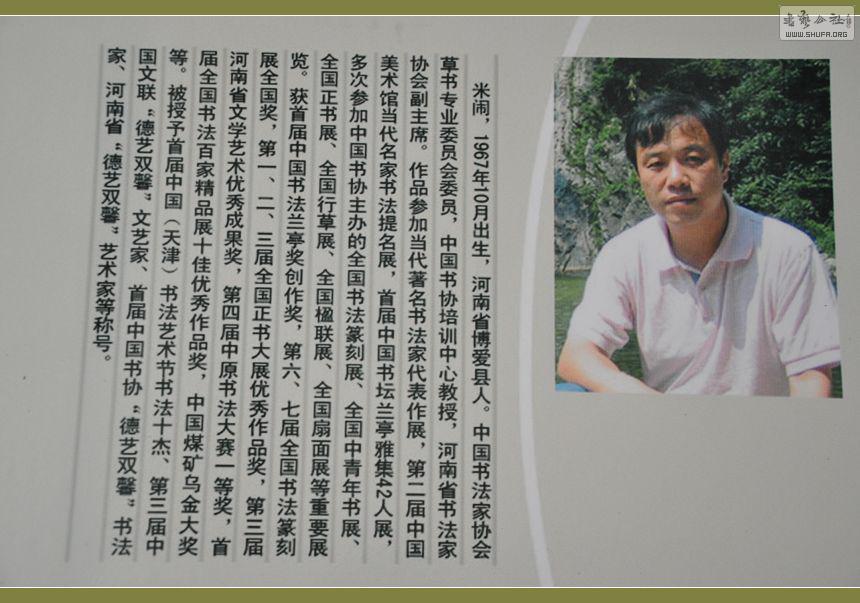 米闹，1967年10月出生，河南省博爱县人。中国书法家协会
草书专业委员会委员，中国书协培训中心教授，河南省书法家
协会副主席。作品参加当代著名书法家代表作展，第二届中国
美术馆当代名家书法提名展，首届中国书坛兰亭雅集42人展，
多次参加中国书协主办的全国书法篆刻展、全国中青年书展、
全国正书展、全国行草展、全国楹联展、全国扇面展等重要展
览。获首届中国书法兰亭奖创作奖，第六、七届全国书法篆刻
展全国奖，第一、二、三届全国正书大展优秀作品奖，第三届
河南省文学艺术优秀成果奖，第四届中原书法大赛一等奖，首
届全国书法百家精品展十佳优秀作品奖，中国煤矿乌金大奖
等。被授予首届中国（天津）书法艺术节书法十杰、第三届中
国文联“德艺双馨”文艺家、首届中国书协“德艺双馨”书法
家、河南省“德艺双馨”艺术家等称号。
书艺公社
WWW.SHUFA.ORG